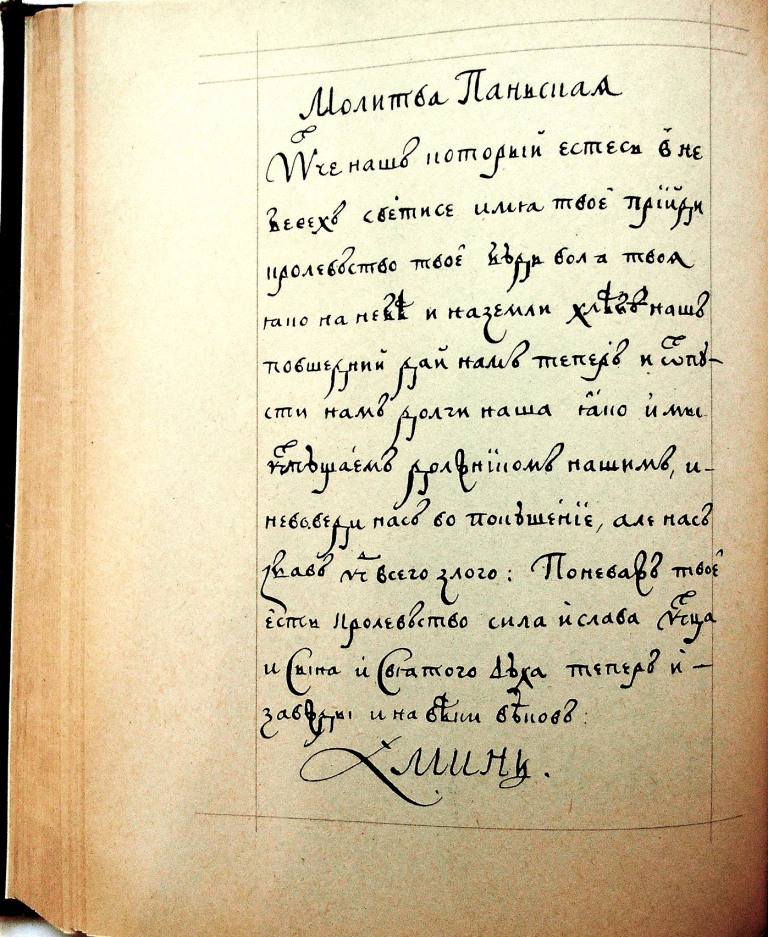 Молитва Паньскаѧ
Ѿче нашъ который естесь в не
бесехъ свѣтисе имѧ твое прійди
кролевъство твое бꙋдь вола твоѧ
ꙗко на небѣ и на земли хлѣбъ нашъ
повшедний дай намъ теперъ и ѿпꙋ-
сти намъ долги наша ꙗко и мы
ѿпꙋщаемъ должникомъ нашимъ, и-
невъведи насъ во покꙋшеніе, але насъ
збавъ ѿ всего злого: Поневажъ твое
есть кролевъство сила и слава Ѿца
и Сына и Свꙗтого Дꙋха теперъ и -
завжды и на вѣки вѣковъ:
Аминь.